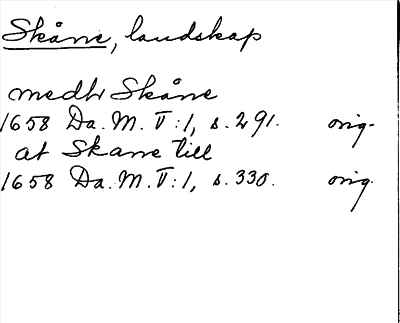 Skåne, landskap
medh Skåne
1658 Da. M. V:1, s. 291. orig.
at Skane till
1658 Da. M. V:1, s. 330. orig.